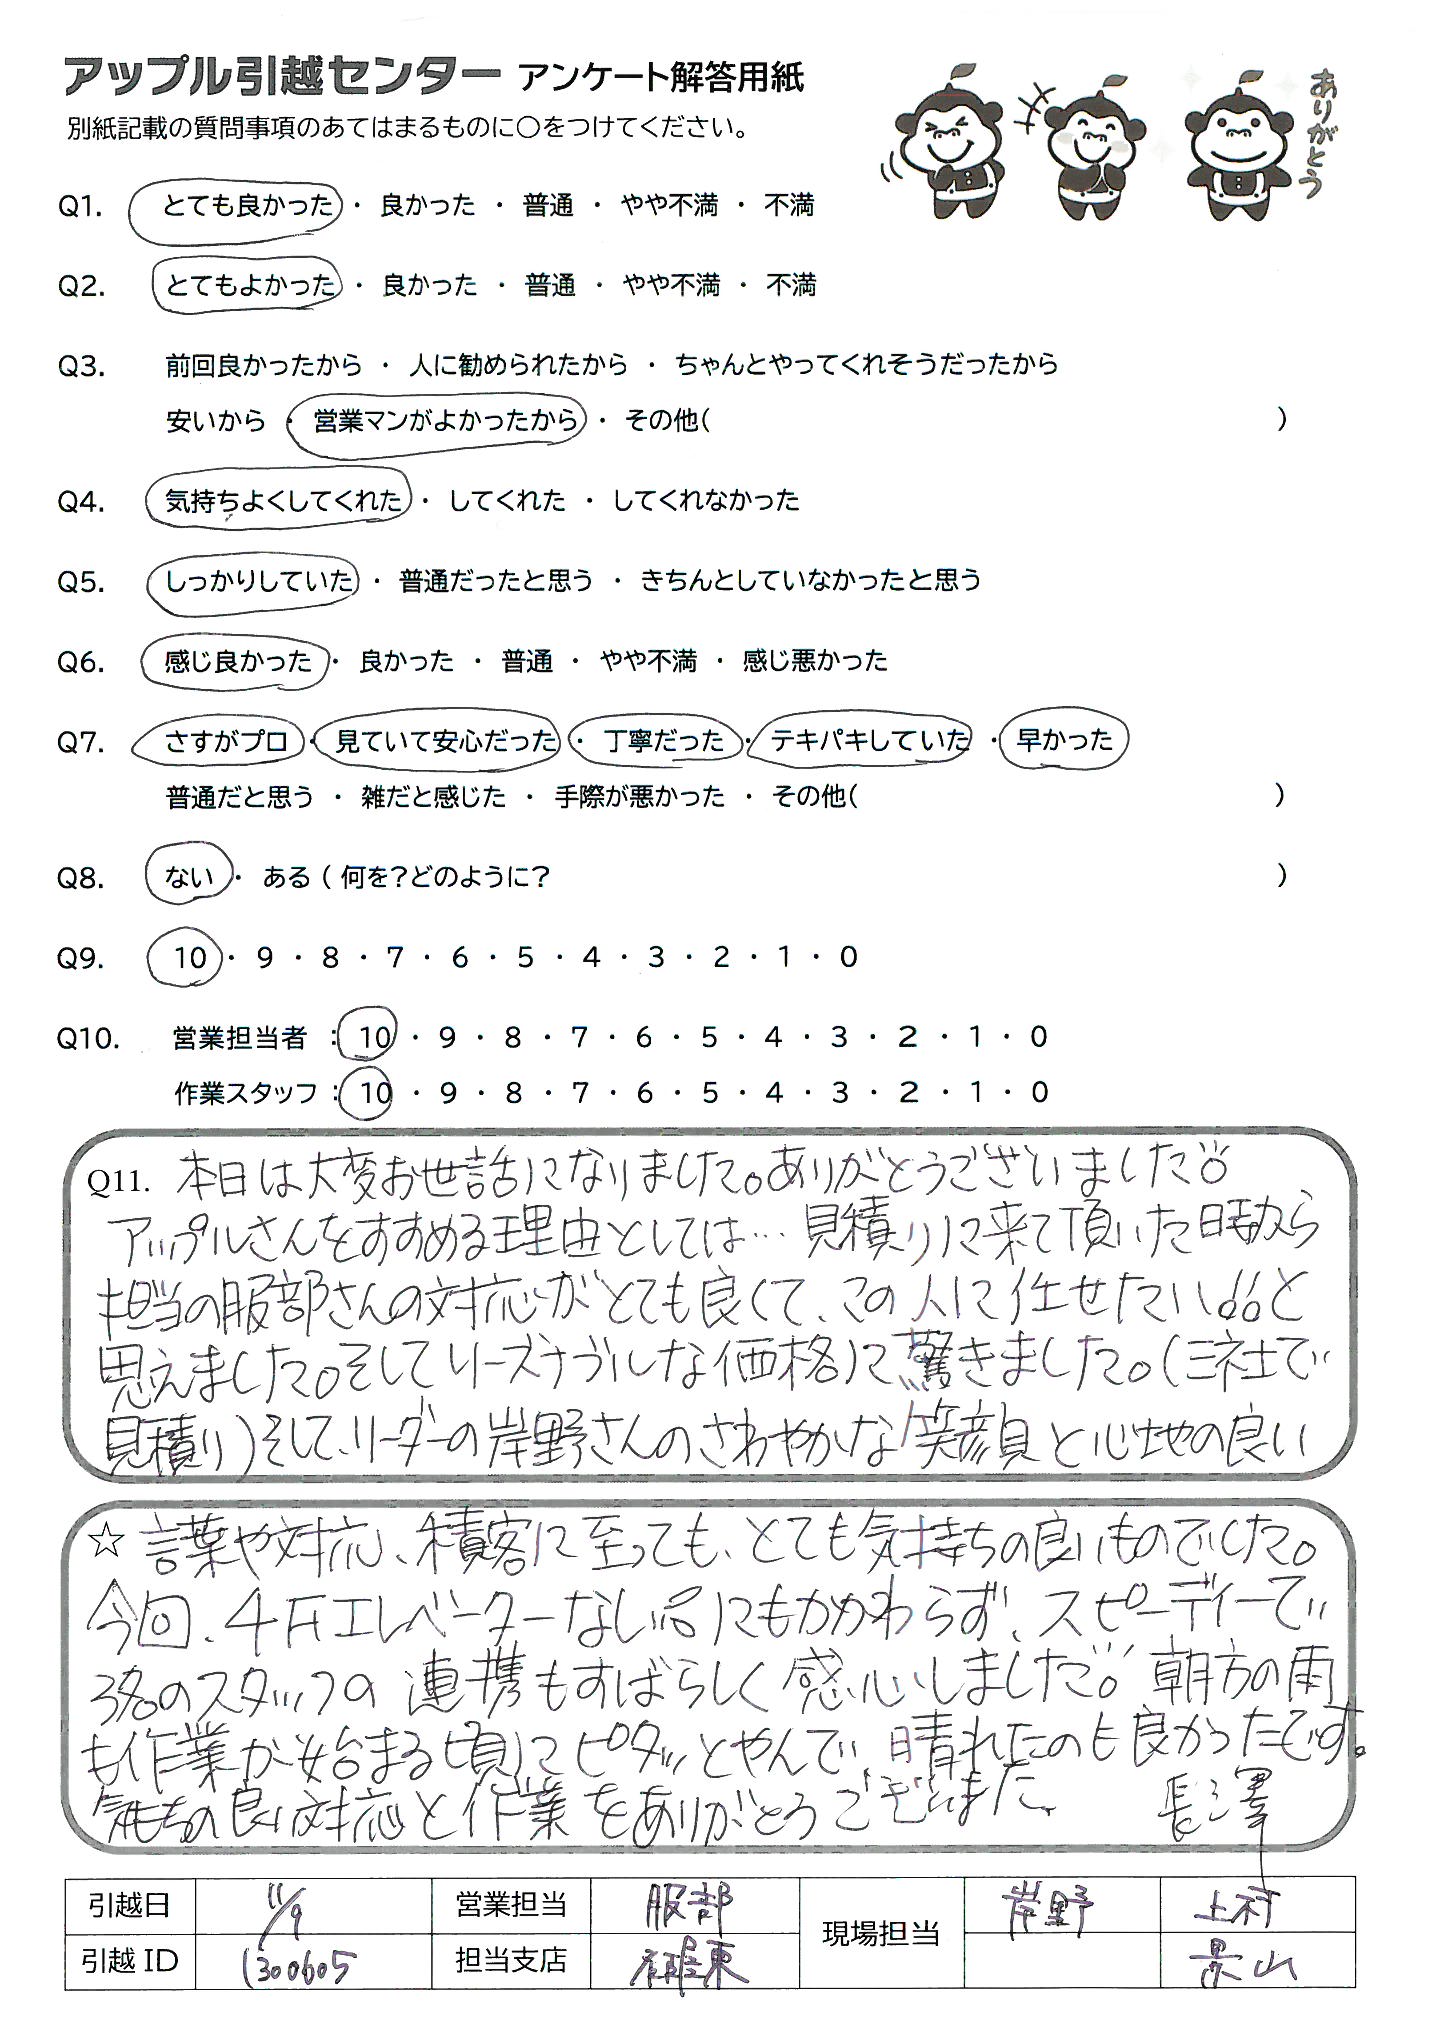 アップル引越センター アンケート解答用紙
ありがとう
別紙記載の質問事項のあてはまるものに○をつけてください。
Q1. とても良かった ・ 良かった ・ 普通 ・ やや不満 ・ 不満
Q2. とてもよかった ・ 良かった ・ 普通 ・ やや不満 ・ 不満
Q3. 前回良かったから ・ 人に勧められたから ・ ちゃんとやってくれそうだったから
安いから ・ 営業マンがよかったから ・ その他( )
Q4. 気持ちよくしてくれた ・ してくれた ・ してくれなかった
Q5. しっかりしていた ・ 普通だったと思う ・ きちんとしていなかったと思う
Q6. 感じ良かった ・ 良かった ・ 普通 ・ やや不満 ・ 感じ悪かった
Q7. さすがプロ ・ 見ていて安心だった ・ 丁寧だった ・ テキパキしていた ・ 早かった
普通だと思う ・ 雑だと感じた ・ 手際が悪かった ・ その他( )
Q8. ない ・ ある ( 何を?どのように? )
Q9. 10 ・ 9 ・ 8 ・ 7 ・ 6 ・ 5 ・ 4 ・ 3 ・ 2 ・ 1 ・ 0
Q10. 営業担当者 : 10 ・ 9 ・ 8 ・ 7 ・ 6 ・ 5 ・ 4 ・ 3 ・ 2 ・ 1 ・ 0
作業スタッフ : 10 ・ 9 ・ 8 ・ 7 ・ 6 ・ 5 ・ 4 ・ 3 ・ 2 ・ 1 ・ 0
Q11. 本日は大変お世話になりました。ありがとうございました
アップルさんをすすめる理由としては… 見積りに来て頂いた時から
担当の服部さんの対応がとても良くて、この人に任せたい!!と
思えました。そしてリーズナブルな価格に驚きました。(三社で
見積り)そして、リーダーの岸野さんのさわやかな笑顔と心地の良い
☆ 言葉や対応、積客に至っても、とても気持ちの良いものでした。
今回、4Fエレベーターなしにもかかわらず、スピーディーで
3名のスタッフの連携もすばらしく感心しました。朝方の雨
も作業が始まる頃にピタッとやんで、晴れたのも良かったです。
気持ちの良い対応と作業をありがとうございました。 長澤
引越日 11/9 営業担当 服部 現場担当 岸野 上村
引越ID 1300605 担当支店 景山